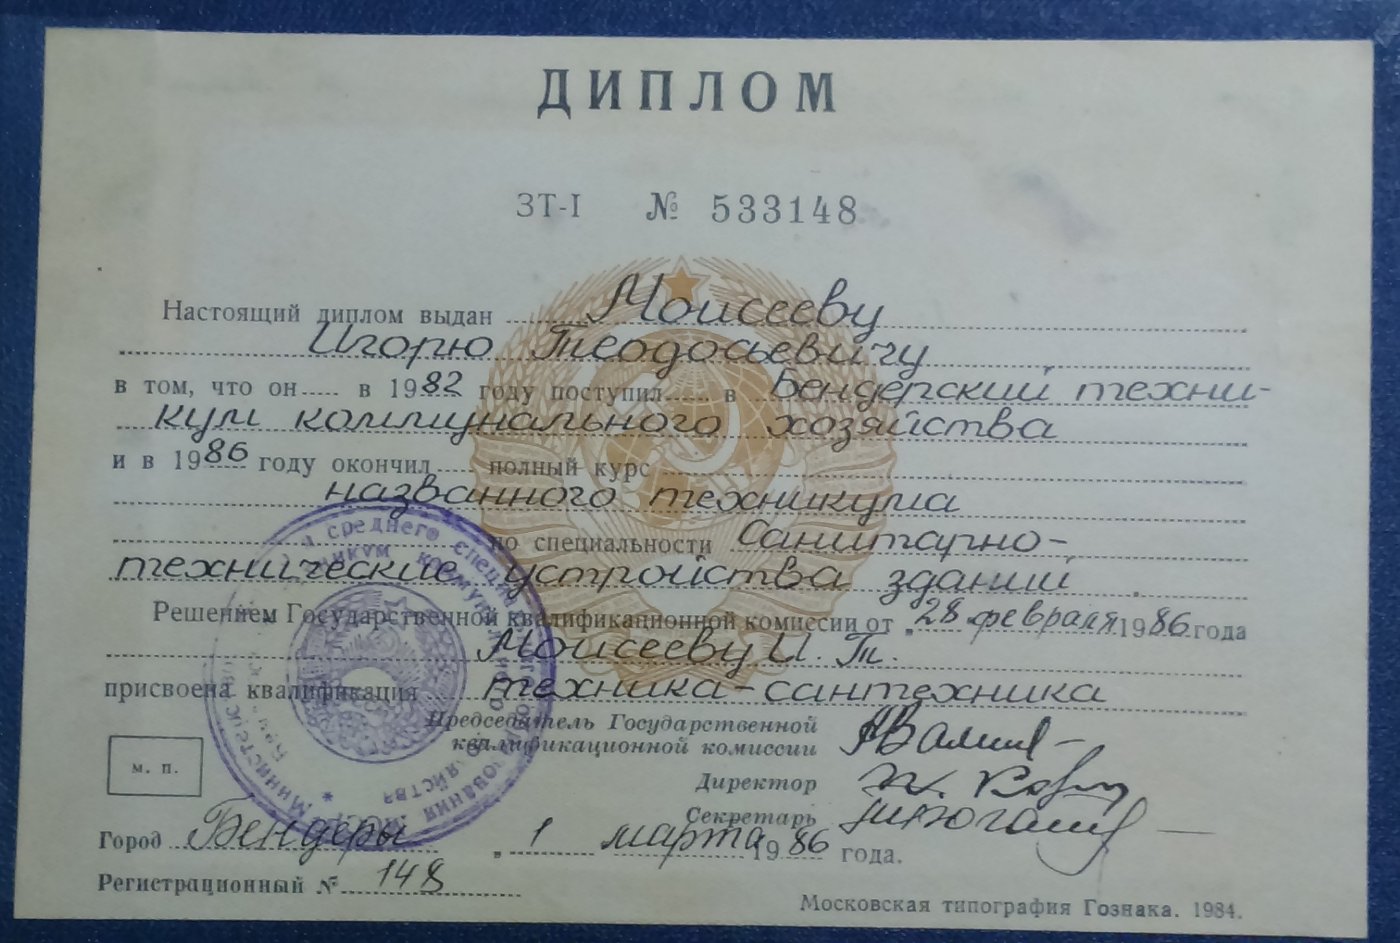 ДИПЛОМ
ЗТ-I № 533148
Настоящий диплом выдан Моисееву
Игорю Теодосьевичу
в том, что он в 1982 году поступил в Бендерский техни-
кум коммунального хозяйства
и в 1986 году окончил полный курс
названного техникума
по специальности Санитарно-
технические устройства зданий
Решением Государственной квалификационной комиссии от „28 февраля 1986 года
Моисееву И. Т.
присвоена квалификация техника-сантехника
Председатель Государственной
квалификационной комиссии
м. п.
Директор
Секретарь
Город Бендеры „ 1 марта 1986 года.
Регистрационный № 148
Московская типография Гознака. 1984.